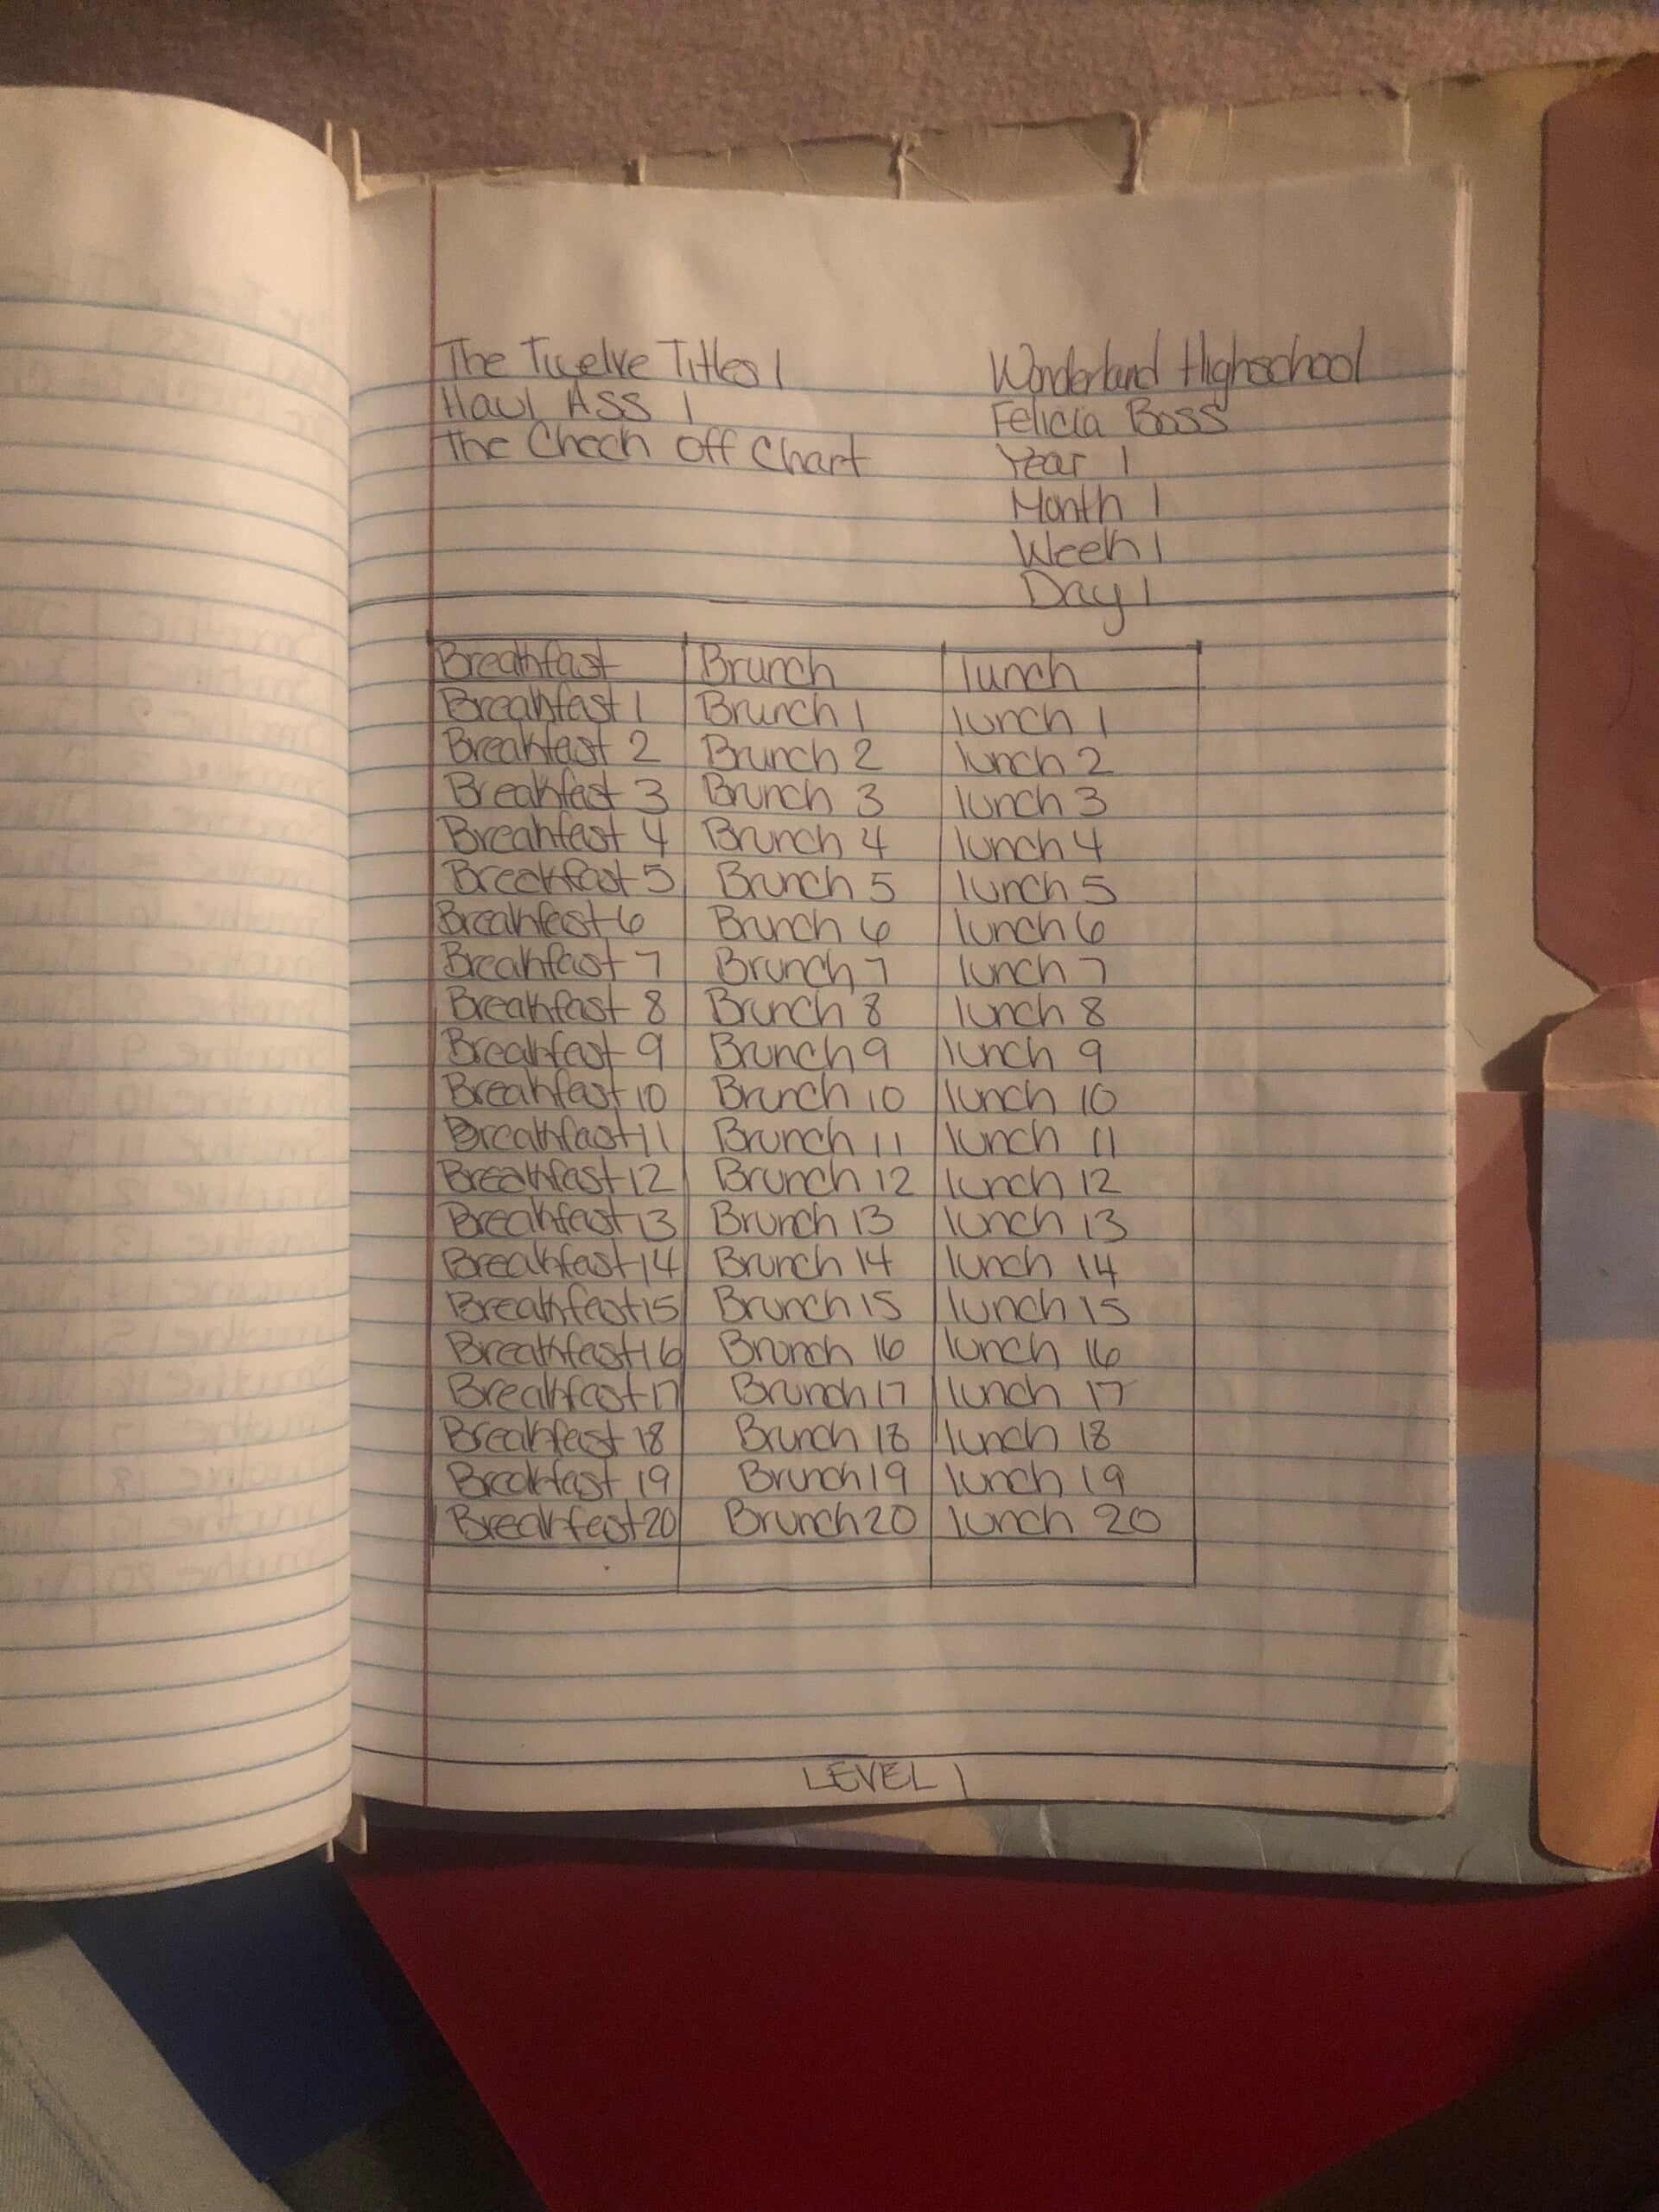 The Twelve Titles 1
Haul Ass 1
The Chech Off Chart
Wonderland Highschool
Felicia Boss
Year 1
Month 1
Week 1
Day 1
Breakfast Brunch lunch
Breakfast 1 Brunch 1 lunch 1
Breakfast 2 Brunch 2 lunch 2
Breakfast 3 Brunch 3 lunch 3
Breakfast 4 Brunch 4 lunch 4
Breakfast 5 Brunch 5 lunch 5
Breakfast 6 Brunch 6 lunch 6
Breakfast 7 Brunch 7 lunch 7
Breakfast 8 Brunch 8 lunch 8
Breakfast 9 Brunch 9 lunch 9
Breakfast 10 Brunch 10 lunch 10
Breakfast 11 Brunch 11 lunch 11
Breakfast 12 Brunch 12 lunch 12
Breakfast 13 Brunch 13 lunch 13
Breakfast 14 Brunch 14 lunch 14
Breakfast 15 Brunch 15 lunch 15
Breakfast 16 Brunch 16 lunch 16
Breakfast 17 Brunch 17 lunch 17
Breakfast 18 Brunch 18 lunch 18
Breakfast 19 Brunch 19 lunch 19
Breakfast 20 Brunch 20 lunch 20
LEVEL 1